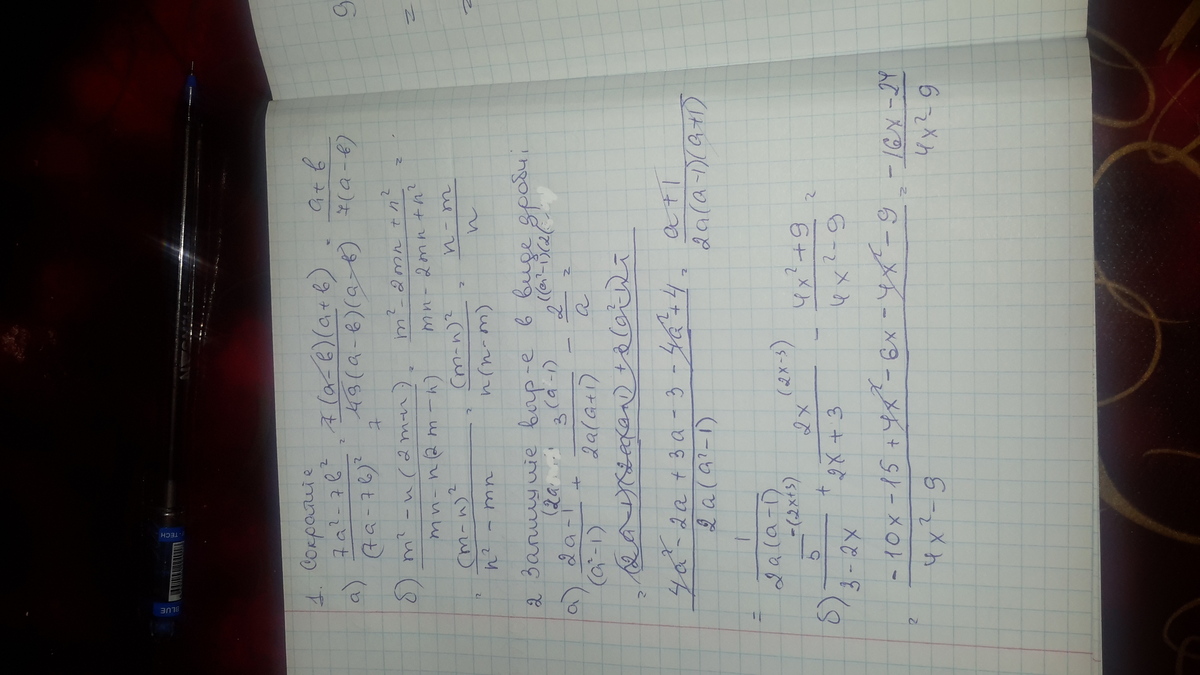 1. Сократите
а) (7a² - 7b²)/(7a - 7b)² = 7(a-b)(a+b)/49(a-b)(a-b) = (a+b)/7(a-b)
7
б) (m² - n(2m-n))/(mn - n(2m-n)) = (m² - 2mn + n²)/(mn - 2mn + n²) =
= (m-n)²/(n² - mn) = (m-n)²/n(n-m) = (n-m)/n
2 Запишите выр-е в виде дроби:
а) (2a-1)/(a²-1) + 3(a-1)/2a(a+1) - 2/a =
= (4a² - 2a + 3a - 3 - 4a² + 4)/2a(a²-1) = (a+1)/2a(a-1)(a+1)
= 1/2a(a-1)
б) 5 -(2x+3)/(3-2x) + 2x (2x-3)/(2x+3) - (4x²+9)/(4x²-9) =
= (-10x - 15 + 4x² - 6x - 4x² - 9)/(4x² - 9) = (-16x - 24)/(4x² - 9)
9
=
=
BLUE